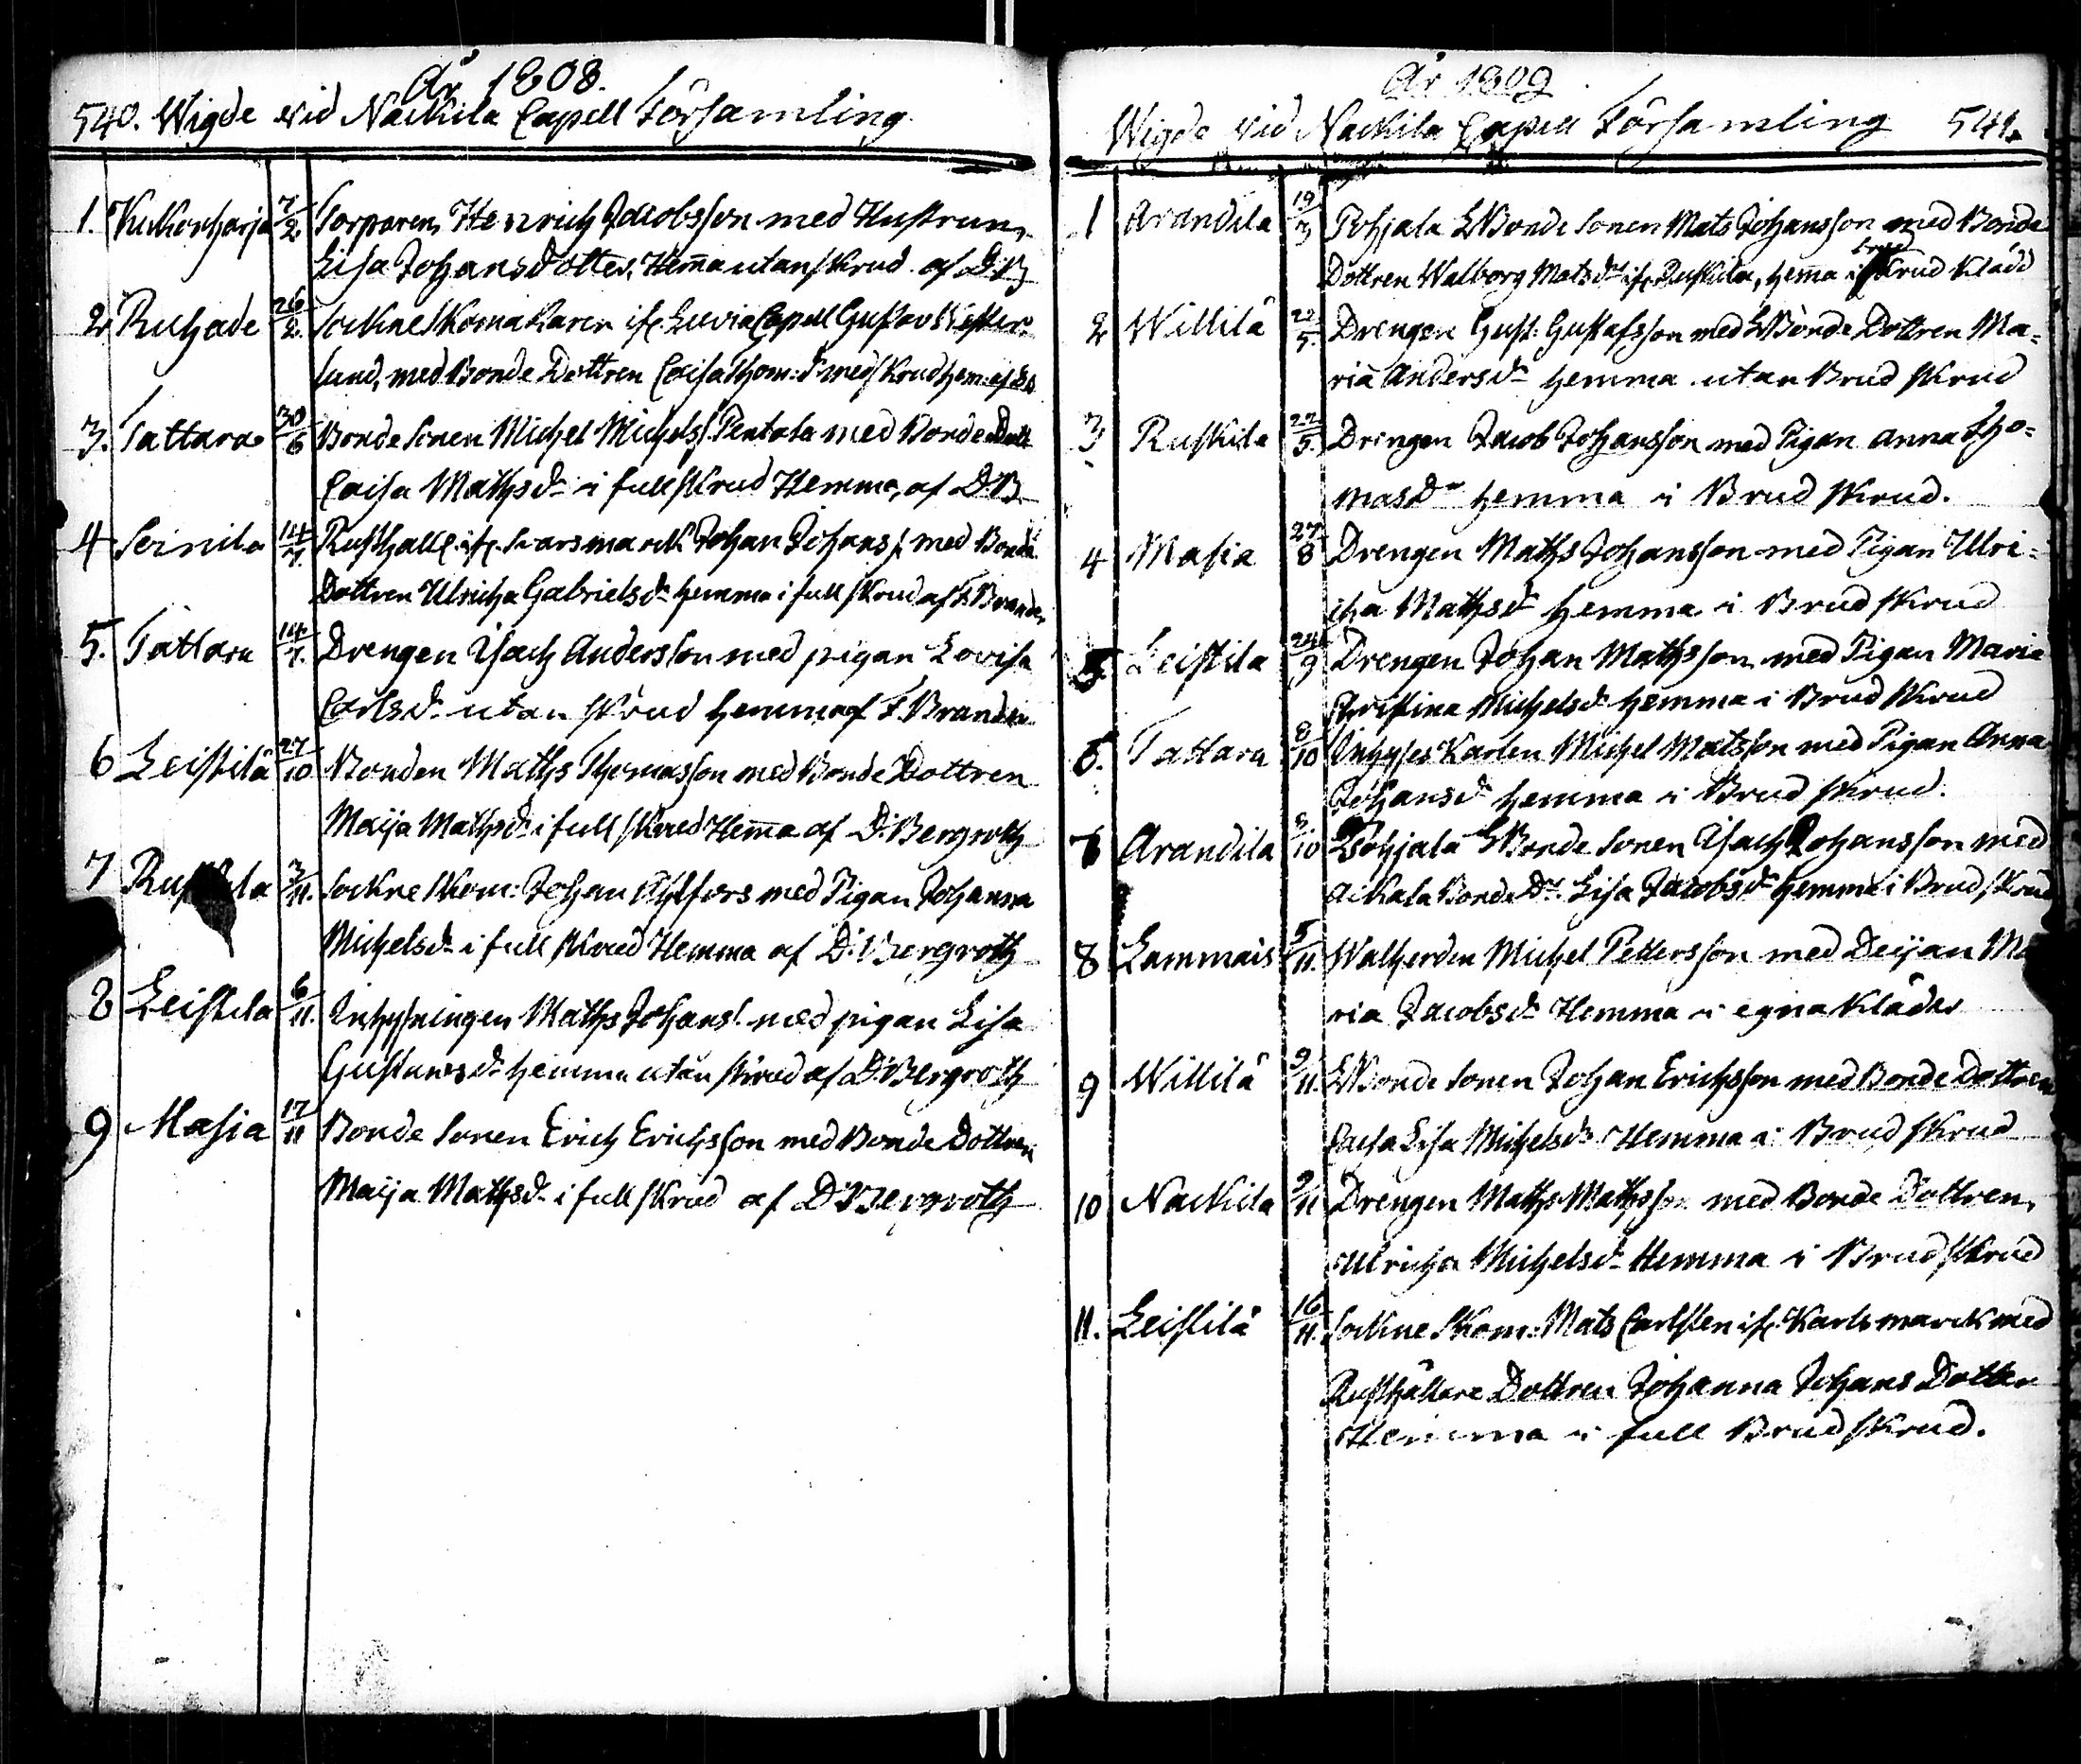 År 1808.
540. Wigde vid Nackila Capell Församling
1. Kukonharja 7/2. Torparen Henrich Jacobsson med Hustrun
Lisa Johansdotter, Hem̄a utan skrud af D:B
2. Ruhade 26/2. Sockne Skomakaren ifr. Luvia Capell Gustav Wester-
lund, med Bonde Dottren Caisa Thom:dr med skrud hem: af
3. Tattara 30/6 Bonde Sonen Michel Michelss. Pentala med Bonde Dott
Caisa Mathsdr i full skrud Hemma, af D:B
4 Soinila 14/7. Rusthåll. ifr. Svarsmarck Johan Johanss. med Bonde
Dottren Ulricha Gabrielsdr hemma i full skrud af F. Brander
5. Tattara 14/7. Drengen Isach Andersson med pigan Lovisa
Carlsdr utan skrud hemma af F. Brander
6 Leistilä 27/10 Bonden Maths Thomasson med Bonde Dottren
Maija Mathsdr i full skrud Hem̄a af D. Bergroth
7 Ruskila 3/11. Sockne Skom: Johan med Pigan Johanna
Michelsdr i full skrud Hemma af D: Bergroth
8 Leistila 6/11. Inhysningen Maths Johans. med pigan Lisa
Gustavsdr hemma utan skrud af D: Bergroth
9 Masia 17/11 Bonde Sonen Erich Erichsson med Bonde Dottren
Maija Mathsdr i full skrud af D: Bergroth
År 1809
Wigde vid Nackila Capell Församling 541.
1 Arandila 19/3 Pohjala Bonde Sonen Mats Johansson med Bonde
Brud
Dottren Walborg Matsdr ifr Ruskila, hem̄a i skrud Klädd
2 Willilä 22/5. Drengen Gust: Gustafsson med Bonde Dottren Ma-
ria Andersdr hemma utan Brud skrud
3 Ruskila 22/5. Drengen Jacob Johansson med Pigan Anna Tho-
masdr hemma i Brud skrud.
4 Masia 27/8 Drengen Maths Johansson med Pigan Ulri-
cha Mathsdr hemma i Brud skrud
5 Leistila 24/9 Drengen Johan Mathsson med Pigan Maria
Christina Michelsdr hemma i Brud skrud
6. Tattara 8/10 Inhyses Karlen Michel Matsson med Pigan Anna
Johansdr hemma i Brud skrud.
7 Arandila 8/10 Pohjala Bonde Sonen Isach Johansson med
Aikala Bonde Dr. Lisa Jacobsdr hemma i Brud skrud
8 Lammais 5/11. Michel Pettersson med Deijan Ma
ria Jacobsdr Hemma i egna Kläder
9 Willilä 9/11. Bonde Sonen Johan Erichsson med Bonde Dottren
Caisa Lisa Michelsdr Hemma i Brud skrud
10 Nackila 9/11 Drengen Maths Mathsson med Bonde Dottren
Ulricha Michelsdr Hemma i Brud skrud
11. Leistilä 16/11. Sockne Skom: Mats Carlsten ifr. Karlsmarck med
Rusthållare Dottren Johanna Johans Dotter
Hemma i full Brud skrud.